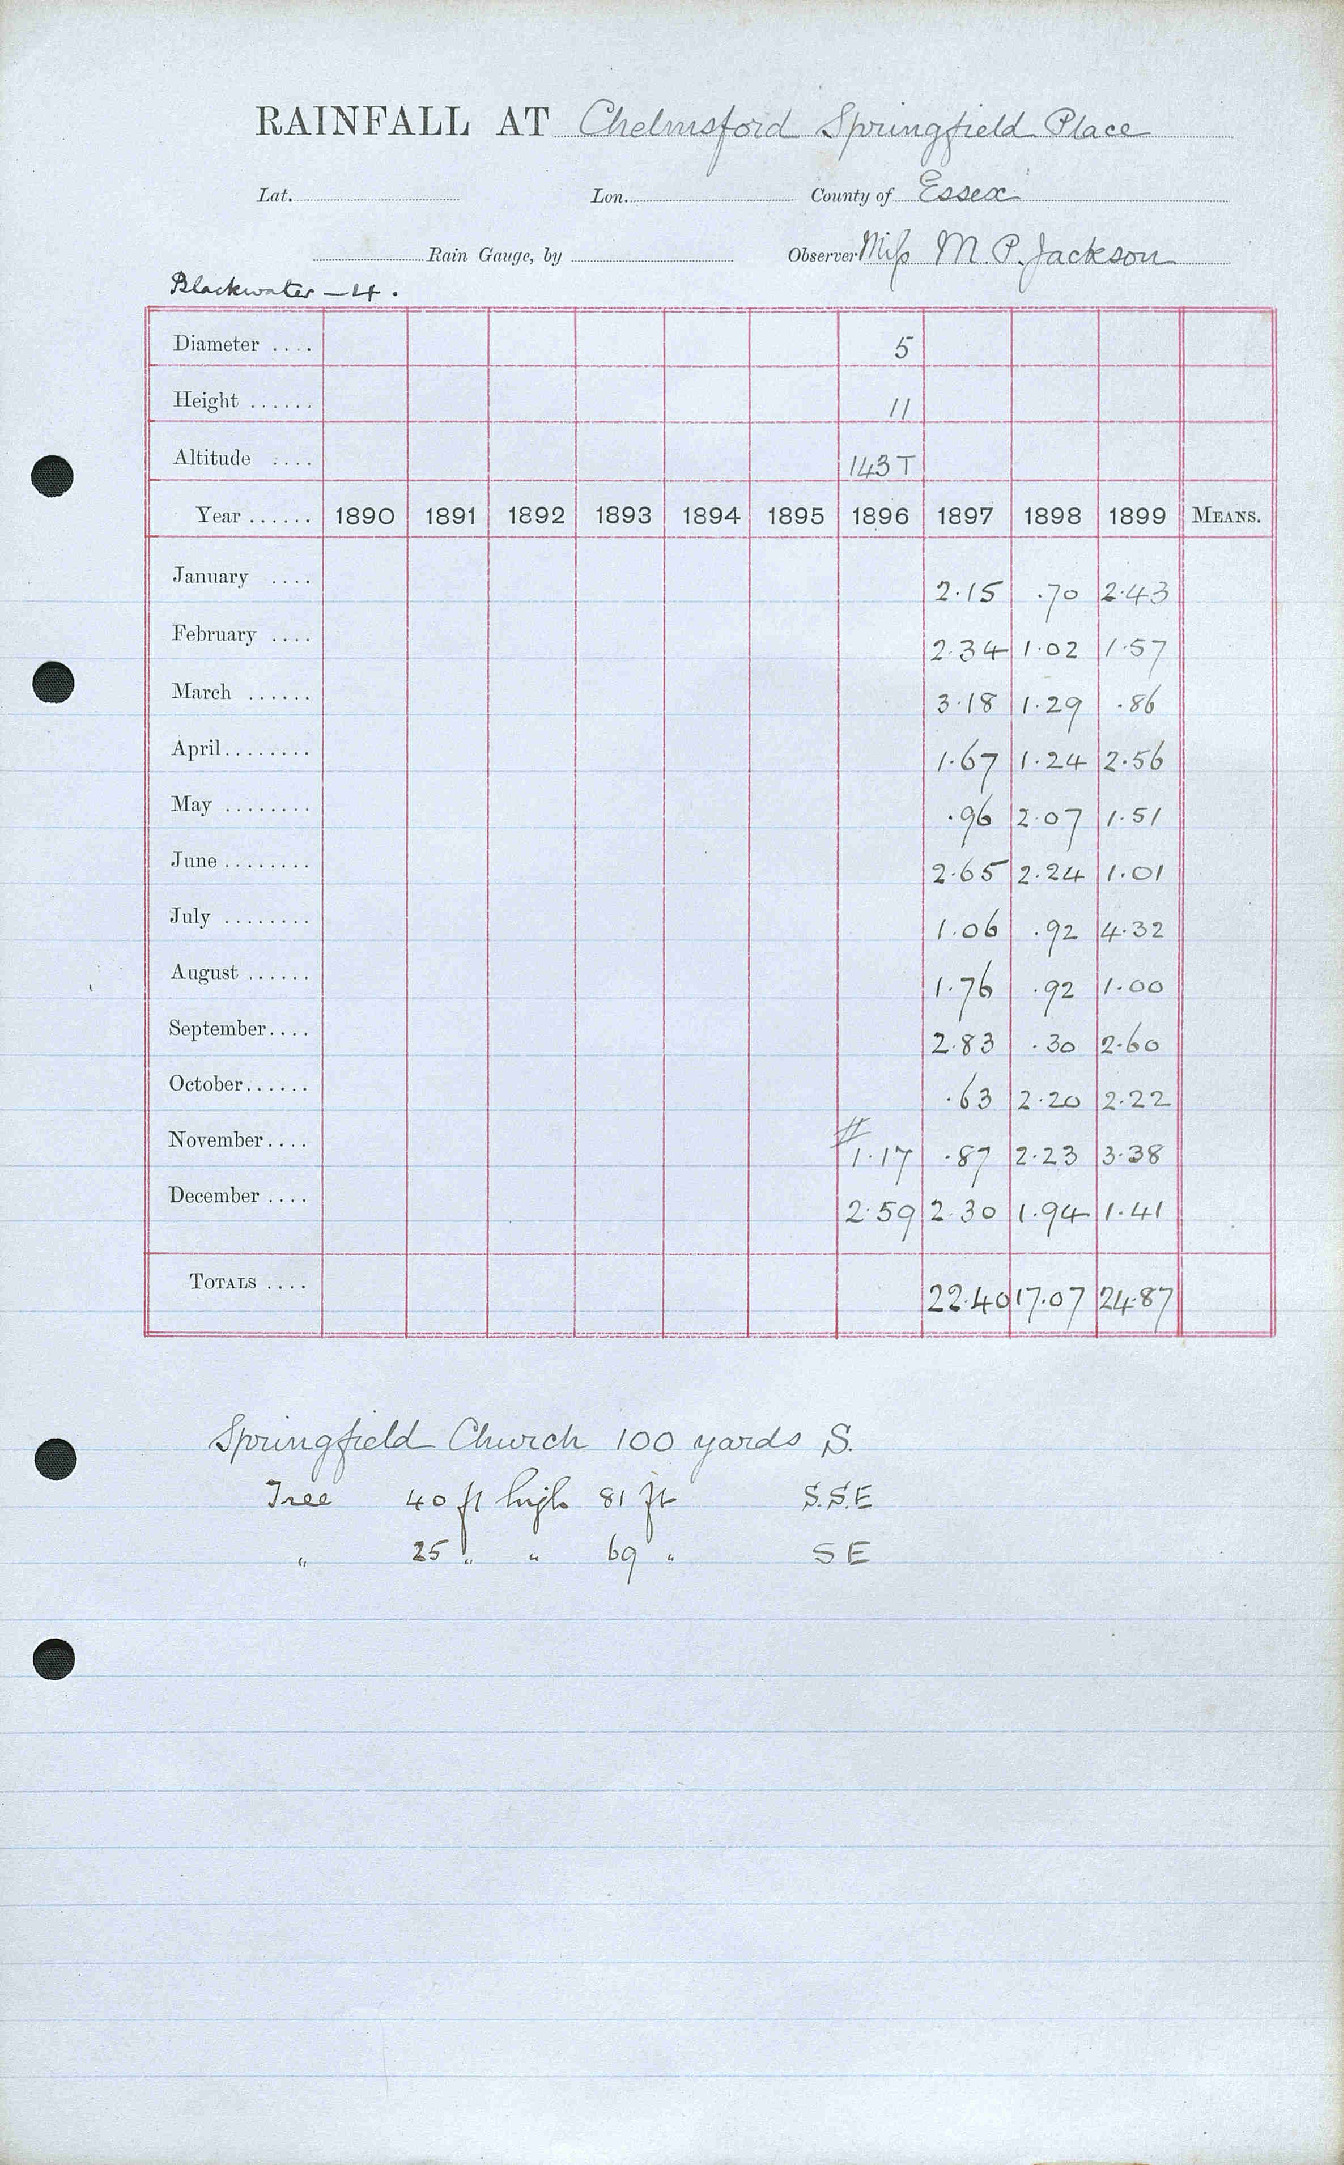 RAINFALL AT Chelmsford Springfield Place
Lat. Lon. County of Essex
Rain Gauge, by Observer Miss M. P. Jackson
Blackwater - 4.
Diameter .... 5
Height ...... 11
Altitude .... 143 T
Year ...... 1890 1891 1892 1893 1894 1895 1896 1897 1898 1899 MEANS.
January .... 2.15 .70 2.43
February .... 2.34 1.02 1.57
March ...... 3.18 1.29 .86
April........ 1.67 1.24 2.56
May ........ .96 2.07 1.51
June ........ 2.65 2.24 1.01
July ........ 1.06 .92 4.32
August ...... 1.76 .92 1.00
September.... 2.83 .30 2.60
October...... .63 2.20 2.22
November.... # 1.17 .87 2.23 3.38
December .... 2.59 2.30 1.94 1.41
TOTALS .... 22.40 17.07 24.87
Springfield Church 100 yards S.
Tree 40 ft high 81 ft S.S.E
" 25 " " 69 " S E